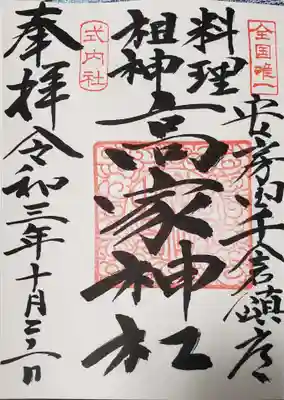 全国唯一
安房国千倉鎮座
料理
祖神
高家神社
式内社
奉拝
令和三年十月